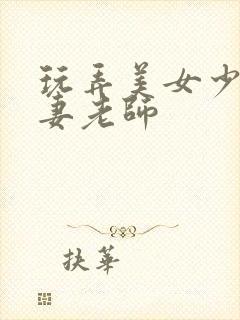 玩弄美女少
妻老師
扶華